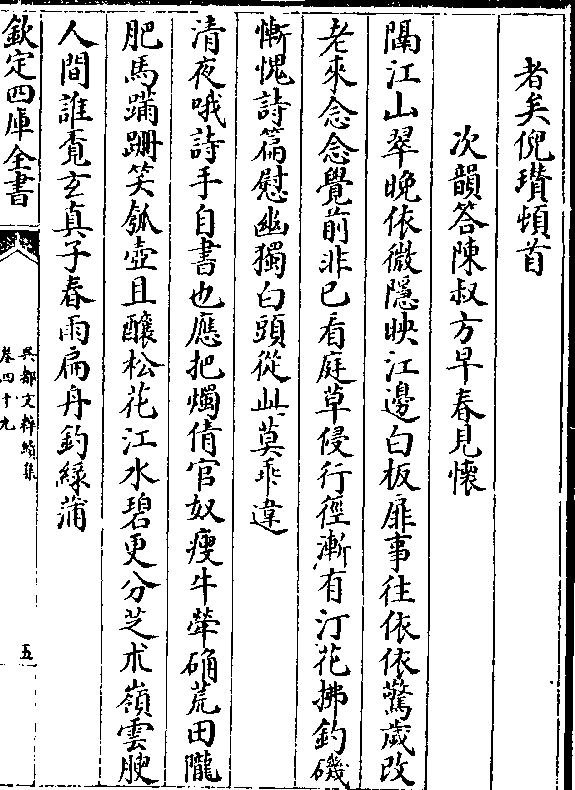 者矣倪瓚頓首
次韻答陳叔方早春見懷
隔江山翠晚依微隱映江邊白板扉事往依依驚歲改
老來念念覺前非已看庭草侵行徑漸有汀花拂釣磯
慚愧詩篇慰幽獨白頭從此莫乖違
清夜哦詩手自書也應把燭倩官奴瘦牛犖确荒田隴
肥馬蹣跚笑瓠壺且釀松花江水碧更分芝朮嶺雲腴
人間誰覔玄真子春雨扁舟釣綠蒲
欽定四庫全書
吳都文粹續集
卷四十九
五